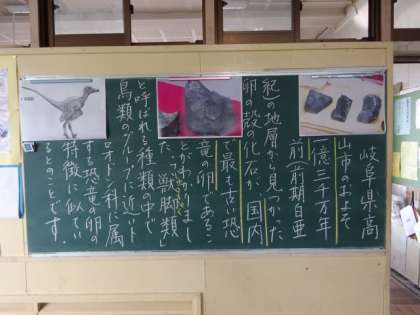 岐阜県高
山市のおよそ
一億三千万年
前前期白亜
紀の地層から見つかった
卵の殻の化石が、国内
で最も古い恐
竜の卵であるこ
とがわかりまし
た。「獣脚類」
と呼ばれる種類の中で
鳥類のグループに近いト
ロオドン科に属
する恐竜の卵の
特徴に似てい
るとのことです。